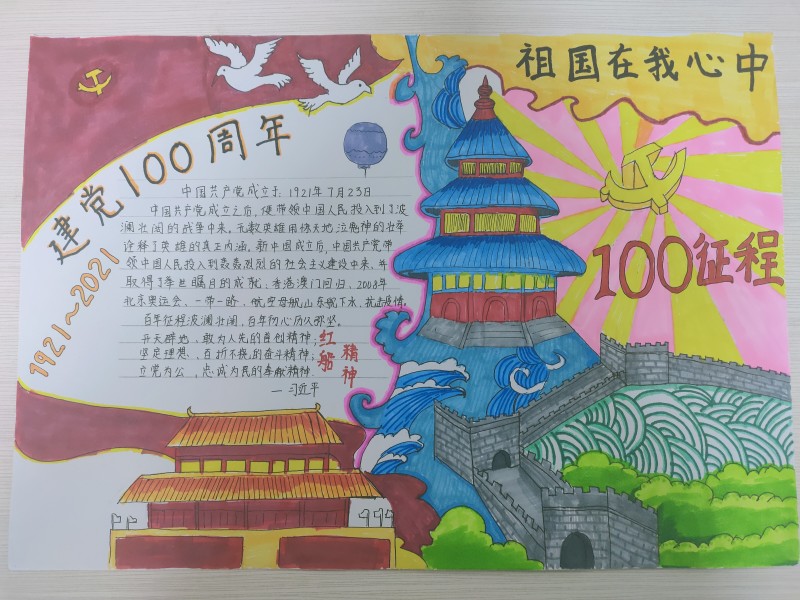 祖国在我心中
建党100周年
1921~2021
100征程
中国共产党成立于1921年7月23日
中国共产党成立之后,便带领中国人民投入到了波
澜壮阔的战争中来。无数英雄用惊天地泣鬼神的壮举
诠释了英雄的真正内涵。新中国成立后,中国共产党带
领中国人民投入到轰轰烈烈的社会主义建设中来,并
取得了举世瞩目的成就,香港澳门回归、2008年
北京奥运会、一带一路、航空母舰山东舰下水、抗击疫情。
百年征程波澜壮阔,百年初心历久弥坚。
开天辟地、敢为人先的首创精神;
坚定理想、百折不挠的奋斗精神;
立党为公、忠诚为民的奉献精神.
—习近平
红船
精神